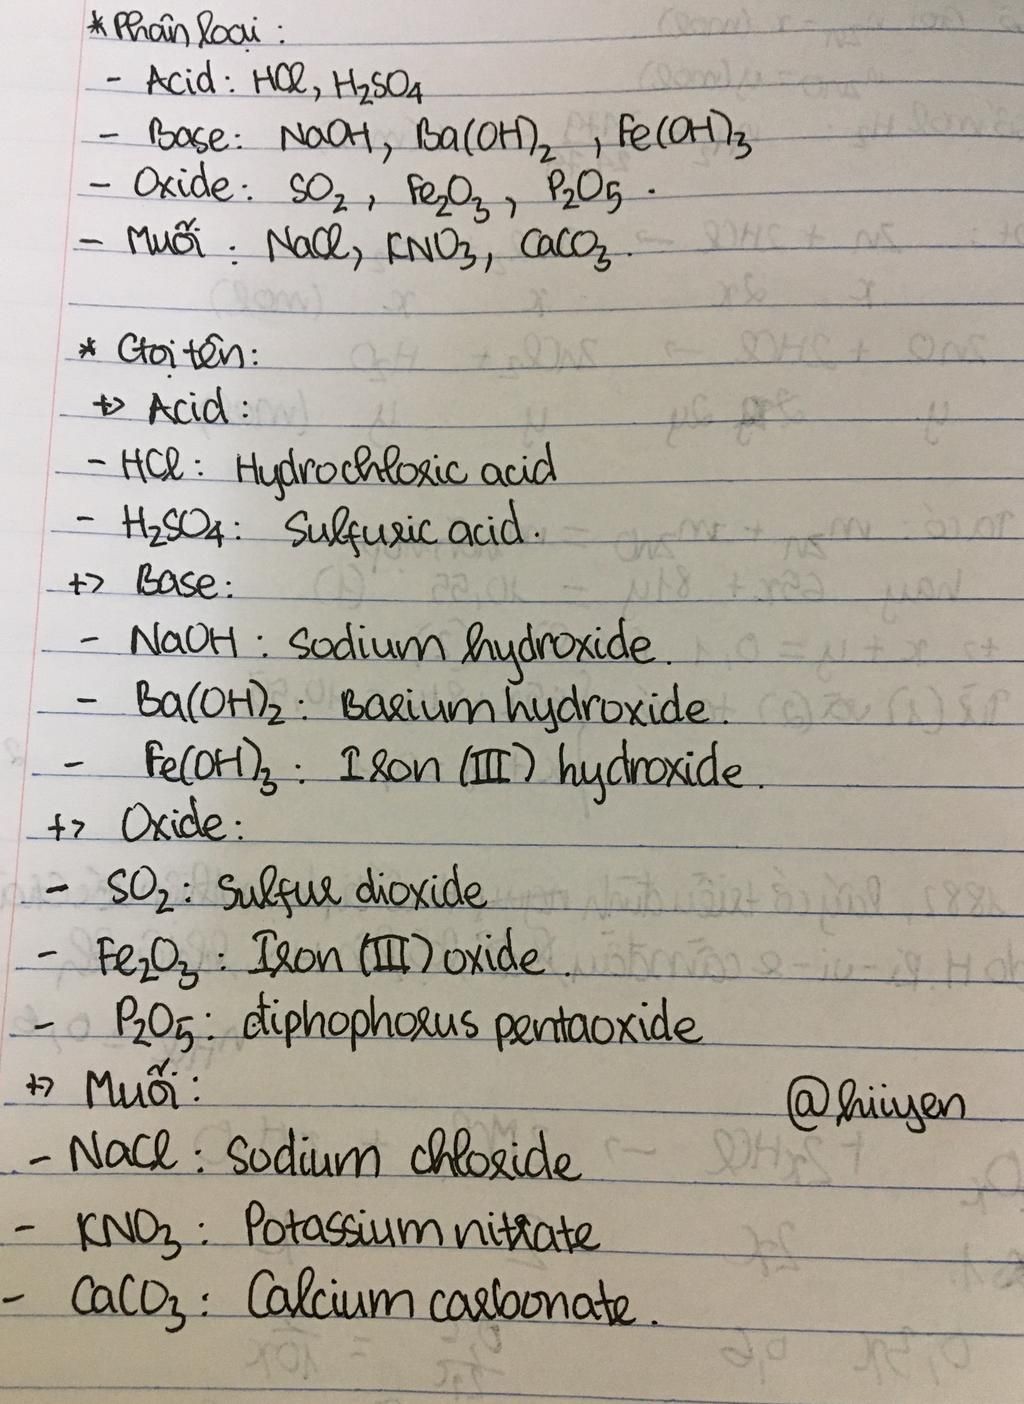 * Phân loại :
- Acid : HCl, H₂SO₄
- Base: NaOH, Ba(OH)₂ , Fe(OH)₃
- Oxide: SO₂ , Fe₂O₃ , P₂O₅ .
- Muối : NaCl, KNO₃, CaCO₃.
* Gọi tên:
+> Acid :
- HCl : Hydrochloric acid
- H₂SO₄: Sulfuric acid.
+> Base:
- NaOH : Sodium hydroxide.
- Ba(OH)₂ : Barium hydroxide.
- Fe(OH)₃ : Iron (III) hydroxide.
+> Oxide:
- SO₂ : Sulfur dioxide
- Fe₂O₃ : Iron (III) oxide.
- P₂O₅ : điphophorus pentaoxide
+> Muối :
@hiiyen
- NaCl : Sodium chloride
- KNO₃ : Potassium nitrate
- CaCO₃ : Calcium carbonate.